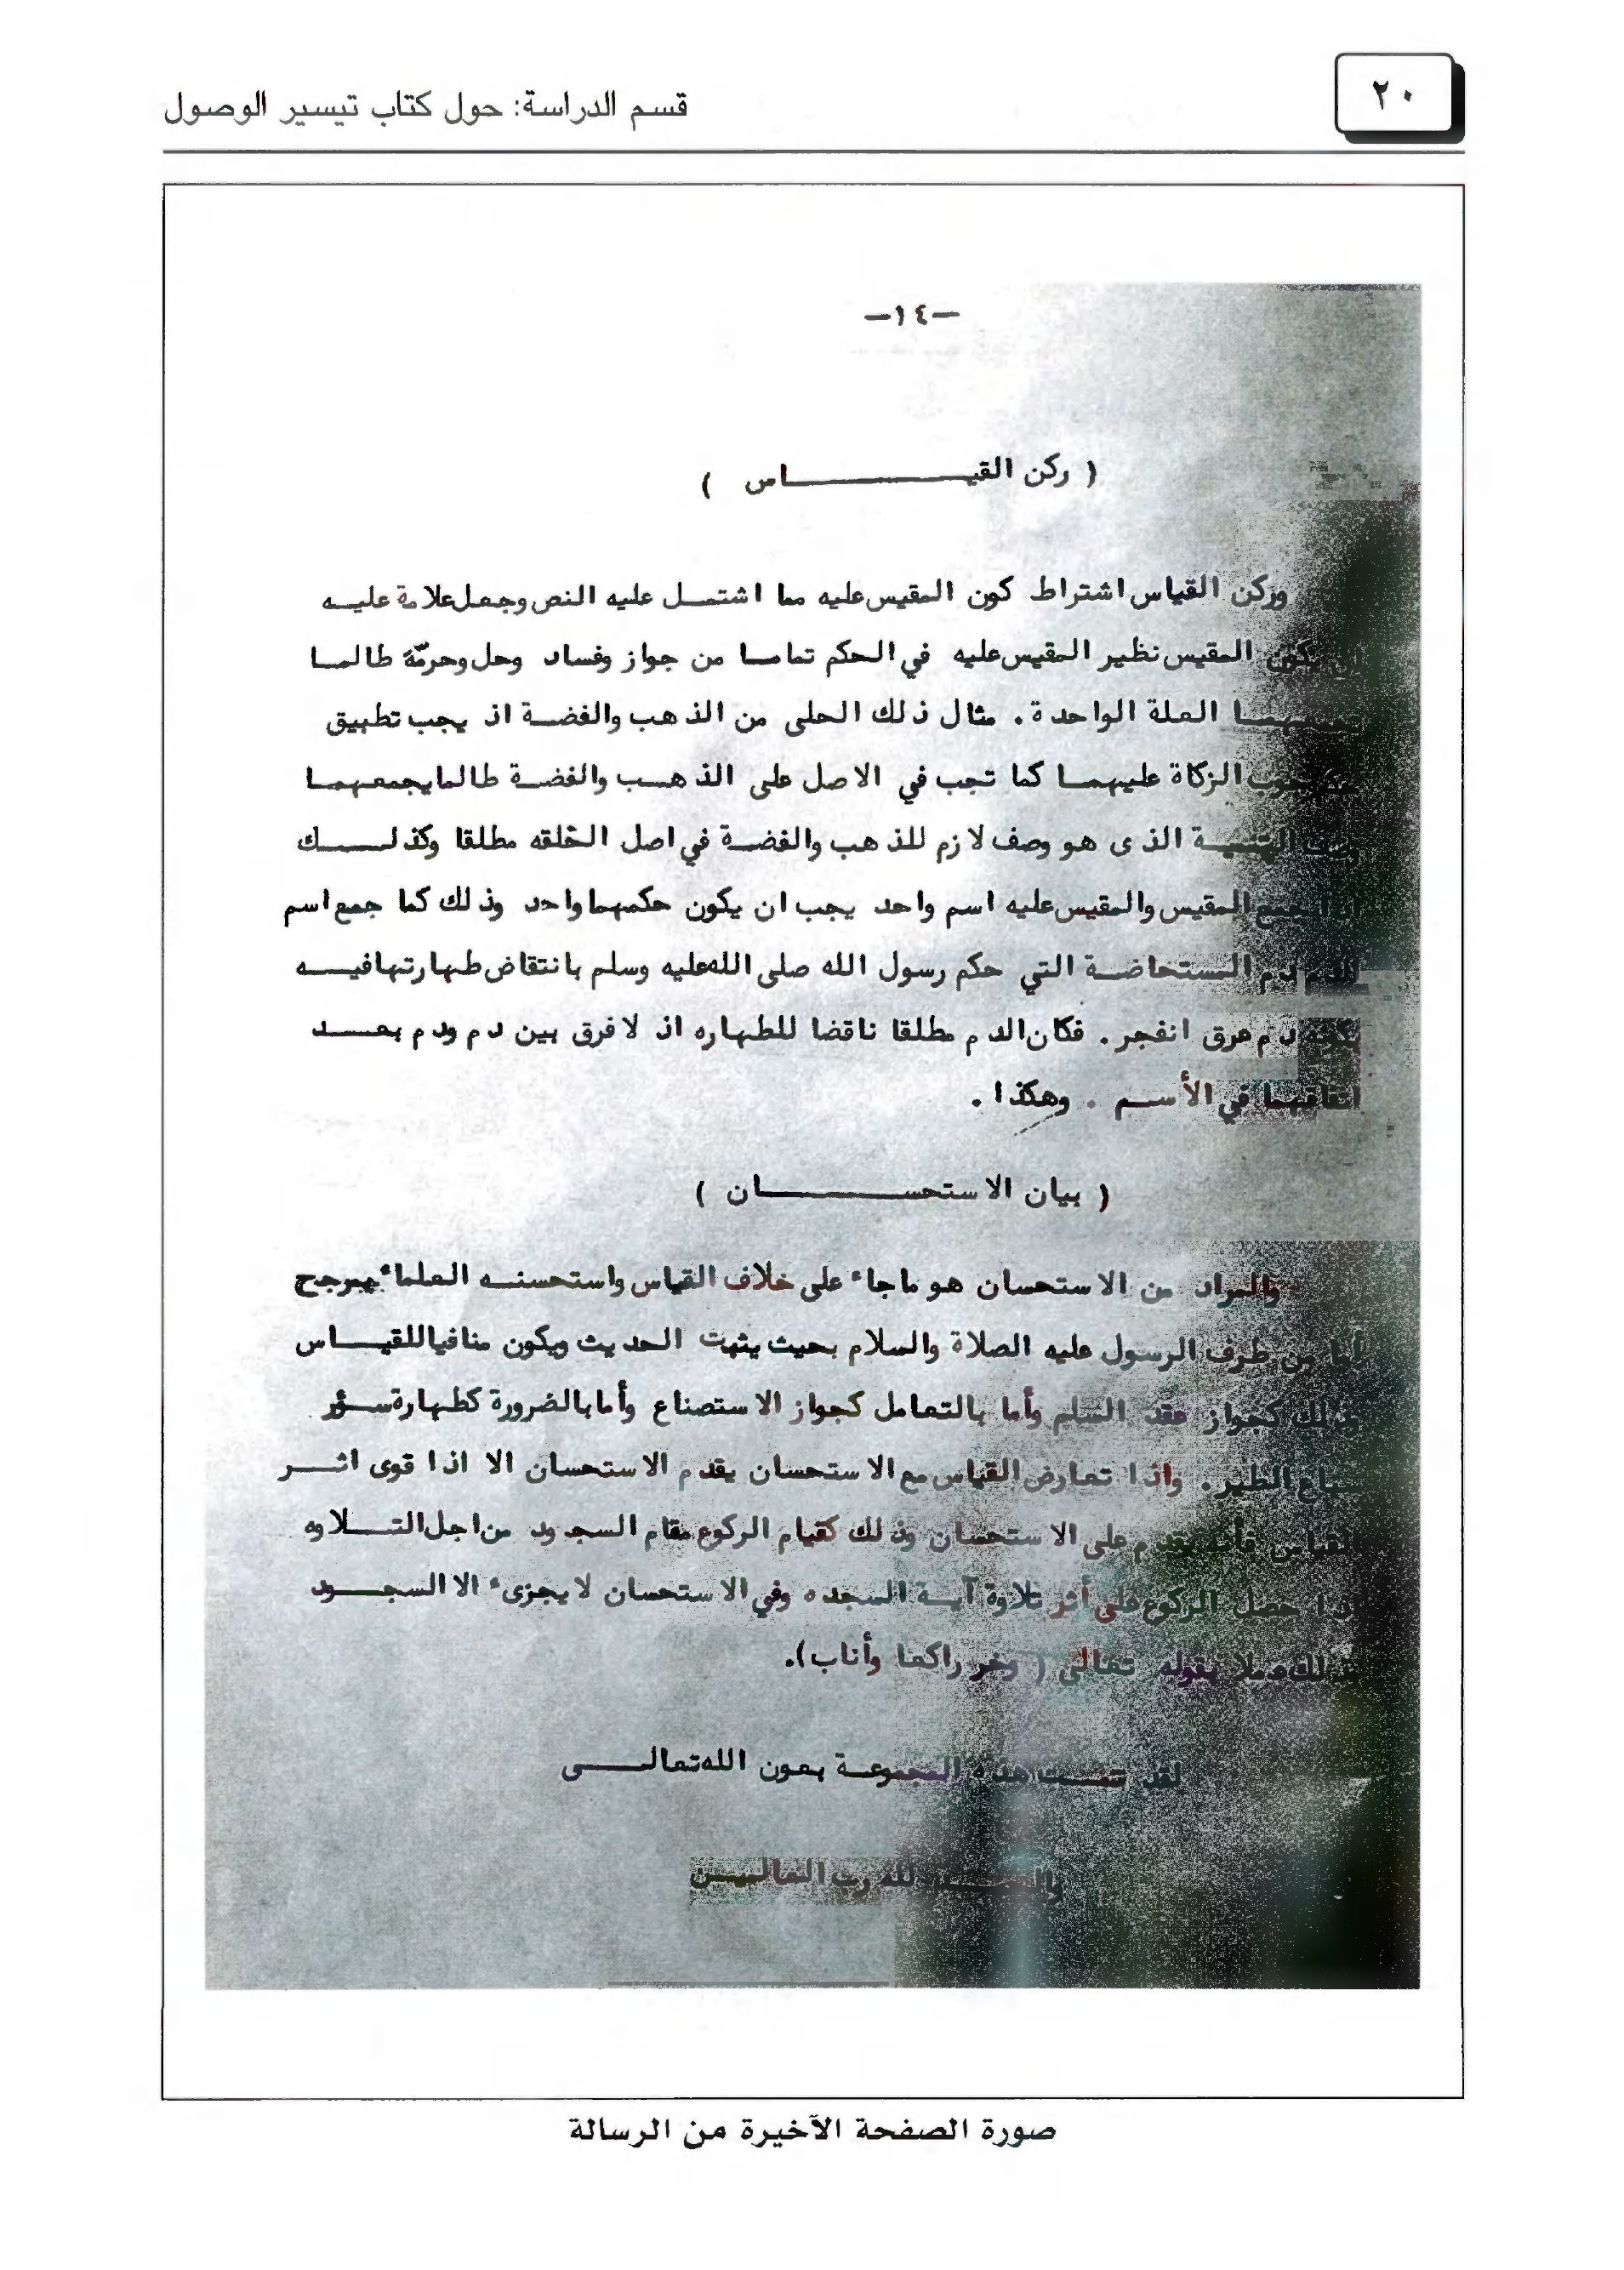 ٢٠
قسم الدراسة: حول كتاب تيسير الوصول
-١٤-
( ركن القيـــــــــاس )
وركن القياس اشتراط كون المقيس عليه مما اشتمــل عليه النص وجعل علامة عليــه
يكون المقيس نظير المقيس عليه في الحكم تمامــا من جواز وفساد وحل وحرمّة طالمــا
العلة الواحدة . مثال ذلك الحلى من الذهب والفضــة اذ يجب تطبيق
الزكاة عليهمــا كما تجب في الاصل على الذهــب والفضــة طالما يجمعهمــا
الذى هو وصف لازم للذهب والفضــة في اصل الخلقه مطلقا وكذلــــك
المقيس والمقيس عليه اسم واحد يجب ان يكون حكمهما واحد وذلك كما جمع اسم
المستحاضــة التي حكم رسول الله صلى الله عليه وسلم بانتقاض طهارتها فيــه
دم عرق انفجر . فكان الدم مطلقا ناقضا للطهاره اذ لا فرق بين دم ودم بعــد
اتفاقهما في الأســم . وهكذا .
( بيان الاستحســــــــان )
والمراد من الاستحسان هو ماجاء على خلاف القياس واستحسنــه العلماء بمرجح
أما من طرف الرسول عليه الصلاة والسلام بحيث يثبت الحديث ويكون منافيا للقيــاس
وذلك كجواز عقد السلم وأما بالتعامل كجواز الاستصناع وأما بالضرورة كطهارة ســؤر
سباع الطير . واذا تعارض القياس مع الاستحسان يقدم الاستحسان الا اذا قوى اثــر
القياس فأنه يقدم على الاستحسان وذلك كقيام الركوع مقام السجود من اجل التــلاوه
اذا حصل الركوع على أثر تلاوة آيــة السجده وفي الاستحسان لا يجزىء الا السجــود
عملا بقوله تعالى ( وخر راكعا وأناب).
لقد تمــت هذه المجموعــة بعون الله تعالــــى
والحمــــد لله رب العالميــن
صورة الصفحة الأخيرة من الرسالة